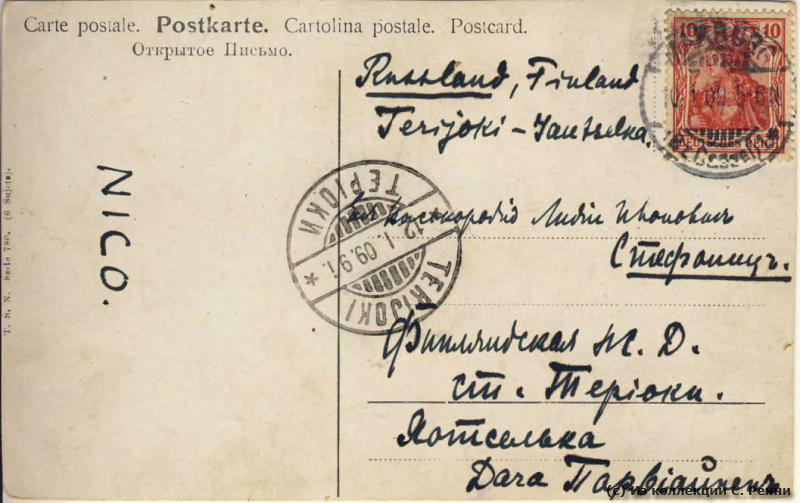 Carte postale. Postkarte. Cartolina postale. Postcard.
Открытое Письмо.
Russland, Finland
Terijoki -
Ея Высокородію Лидіи Ивановнѣ
Стефаницъ.
Финляндская Ж. Д.
ст. Теріоки.
Яотселька
Дача Парвіайненъ
NICO.
T. S. N. Serie 780. (6 Sujets).
10 10
DEUTSCHES REICH
10.1.09. 5-6N
ТЕРІОКИ
12.1.09.9 1.
TERIJOKI
(c) из коллекции С. Ренни